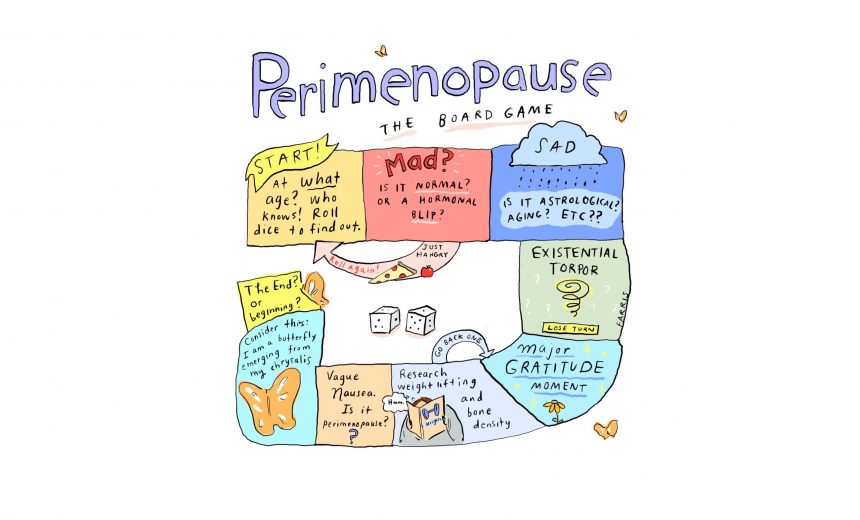 Perimenopause
THE BOARD GAME
START!
At what
age? who
knows! Roll
dice to find out.
Mad?
IS IT NORMAL?
OR A HORMONAL
BLIP?
SAD
IS IT ASTROLOGICAL?
AGING? ETC??
JUST
HANGRY
Roll again!
EXISTENTIAL
TORPOR
? ? ? ? ?
LOSE TURN
FARRIS
major
GRATITUDE
MOMENT
GO BACK ONE
Research
weight lifting
and
bone
density
Hmm.
weights
Vague
Nausea.
Is it
perimenopause?
?
Consider this:
I am a butterfly
emerging from
my chrysalis
The End?
or
beginning?